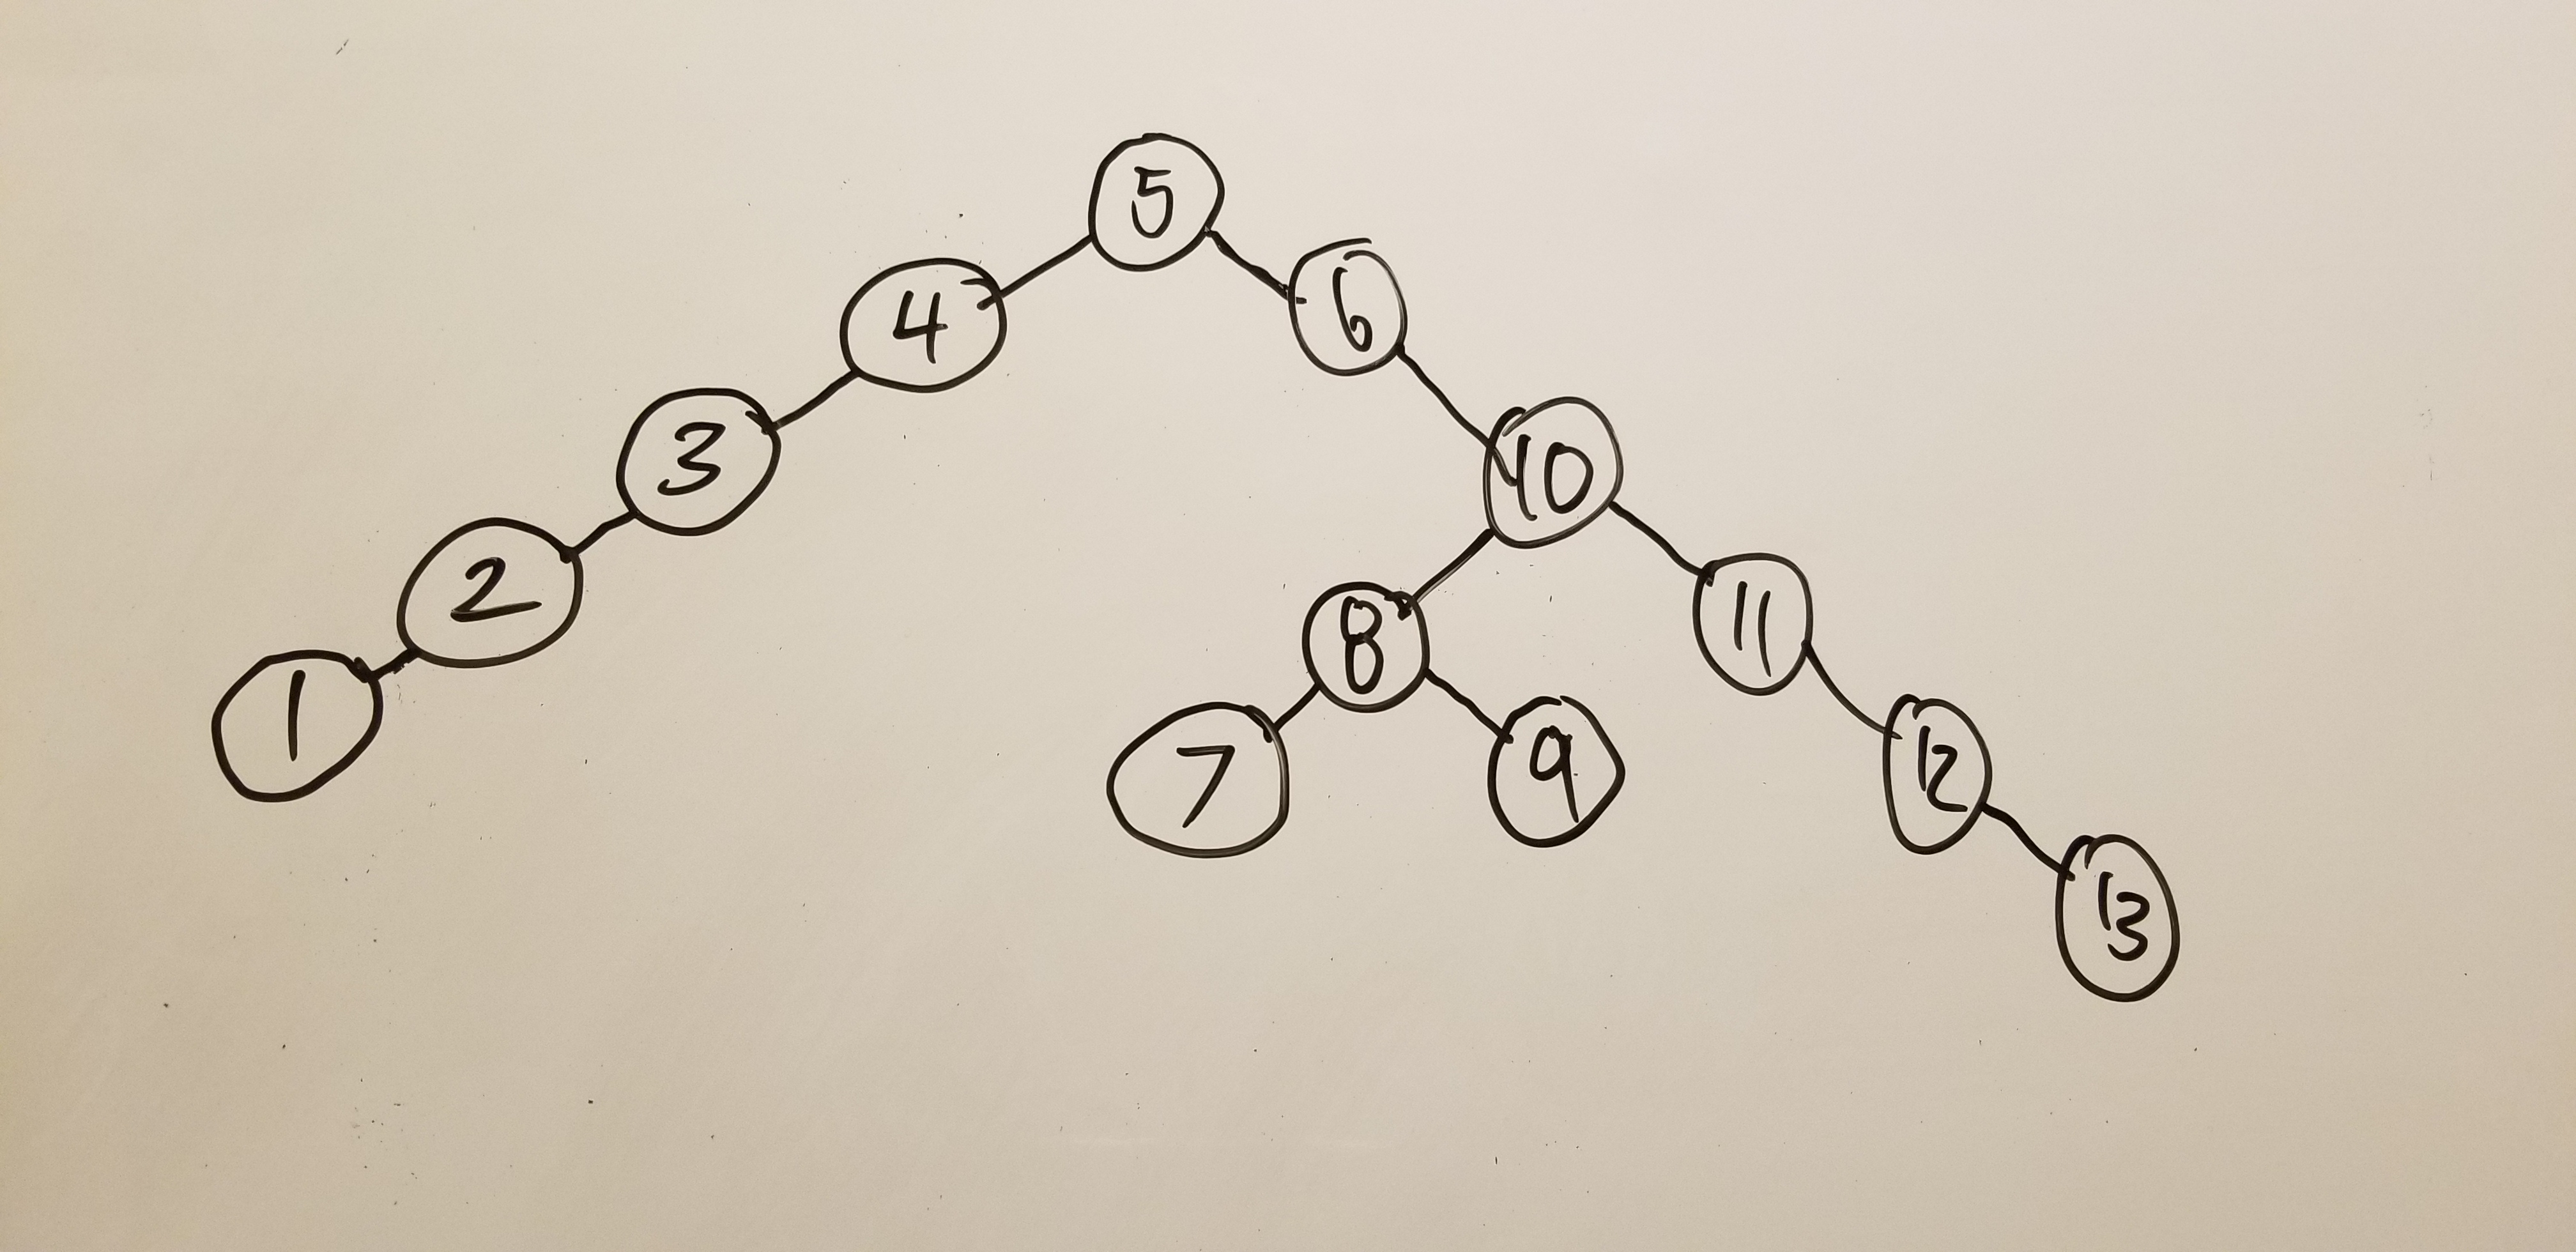 5
4 6
3 10
2 8 11
1 7 9 12
13